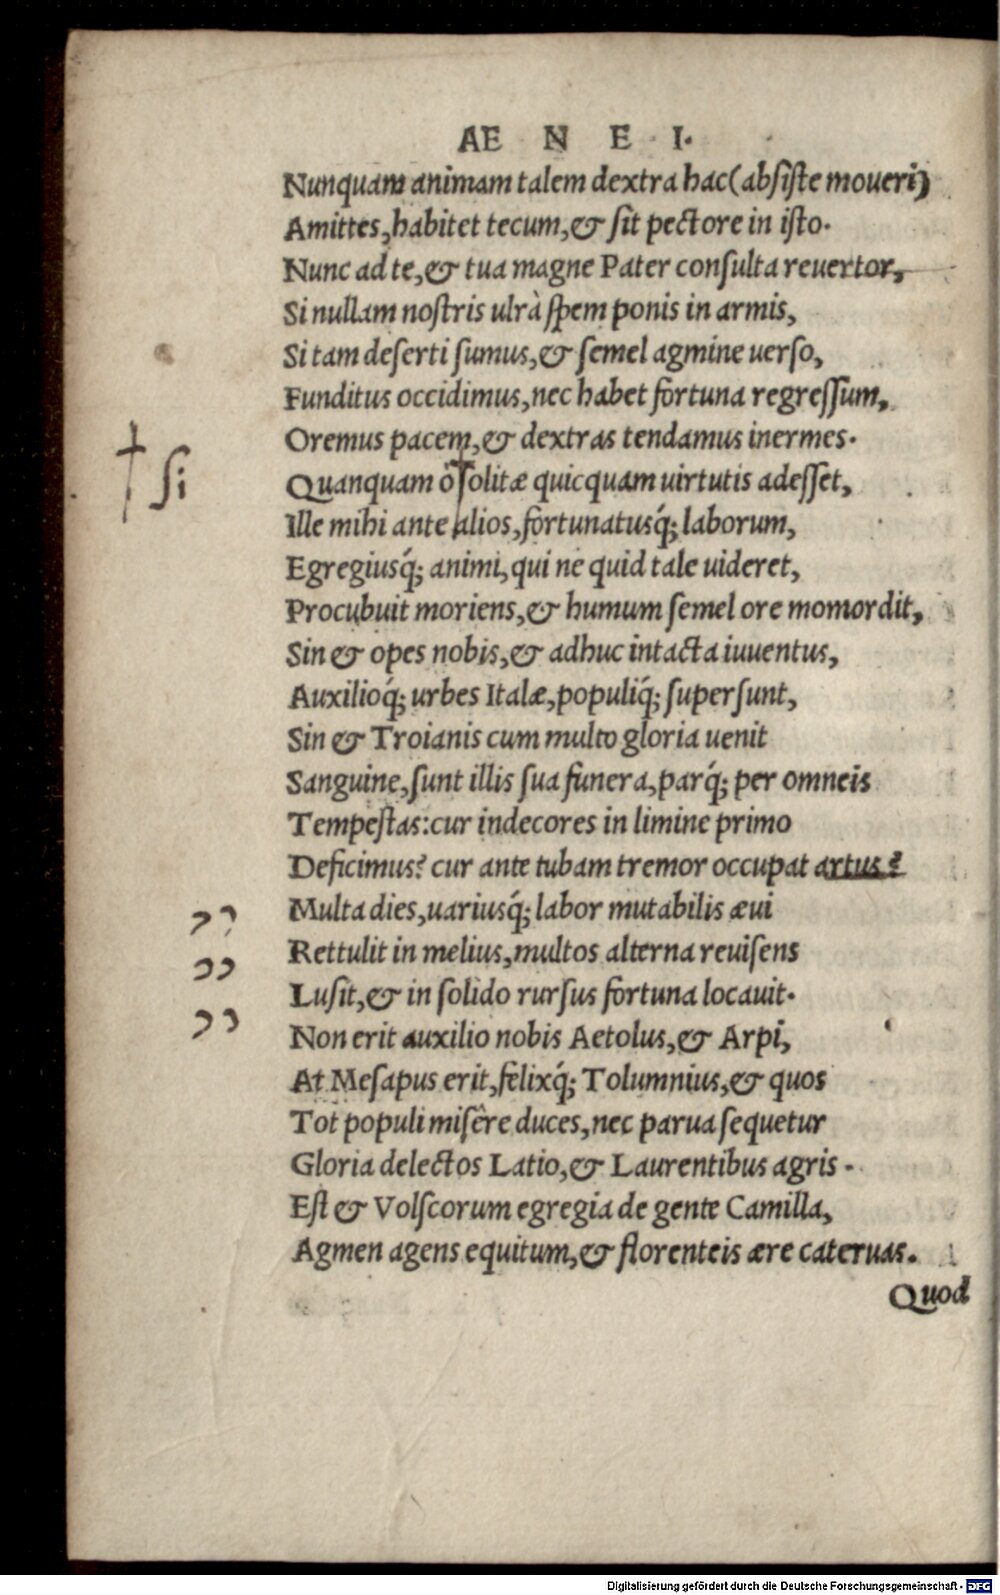 AE N E I.
Nunquam animam talem dextra hac(absiste moueri)
Amittes, habitet tecum, & sit pectore in isto.
Nunc ad te, & tua magne Pater consulta reuertor,
Si nullam nostris ulrà spem ponis in armis,
Si tam deserti sumus, & semel agmine uerso,
Funditus occidimus, nec habet fortuna regressum,
Oremus pacem, & dextras tendamus inermes.
† si
Quanquam ô † solitæ quicquam uirtutis adesset,
Ille mihi ante alios, fortunatusq́; laborum,
Egregiusq́; animi, qui ne quid tale uideret,
Procubuit moriens, & humum semel ore momordit,
Sin & opes nobis, & adhuc intacta iuuentus,
Auxilioq́; urbes Italæ, populiq́; supersunt,
Sin & Troianis cum multo gloria uenit
Sanguine, sunt illis sua funera, parq́; per omneis
Tempestas: cur indecores in limine primo
Deficimus? cur ante tubam tremor occupat artus?
Multa dies, uariusq́; labor mutabilis æui
Rettulit in melius, multos alterna reuisens
Lusit, & in solido rursus fortuna locauit.
Non erit auxilio nobis Aetolus, & Arpi,
At Mesapus erit, felixq́; Tolumnius, & quos
Tot populi misêre duces, nec parua sequetur
Gloria delectos Latio, & Laurentibus agris.
Est & Volscorum egregia de gente Camilla,
Agmen agens equitum, & florenteis ære cateruas.
Quod
Digitalisierung gefördert durch die Deutsche Forschungsgemeinschaft - DFG